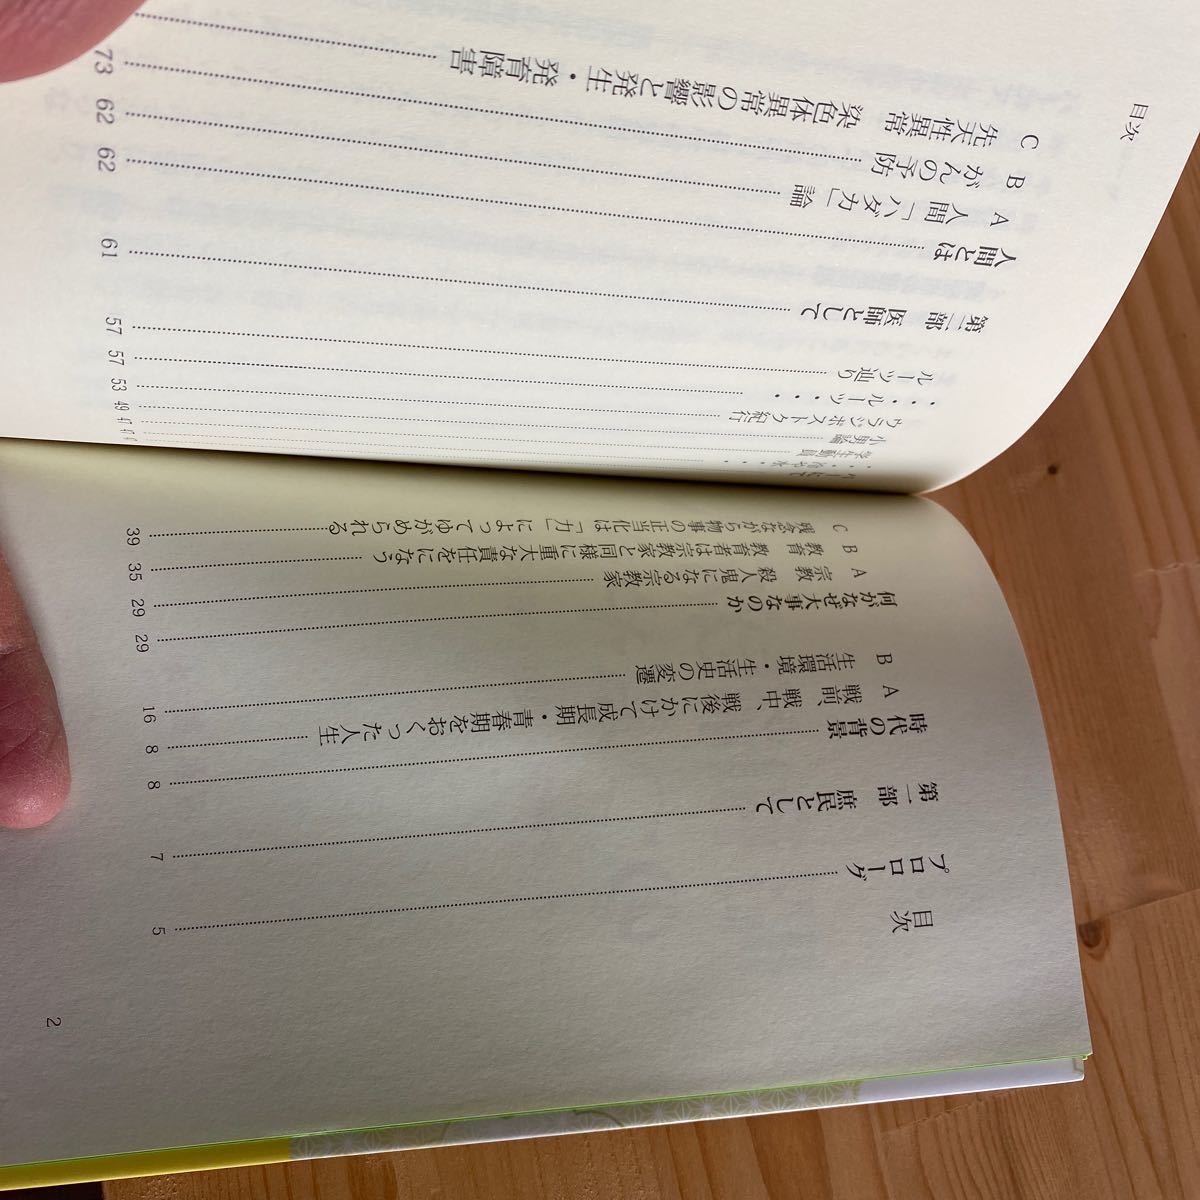 目次
プロローグ 5
第一部 庶民として 7
時代の背景 8
A 戦前、戦中、戦後にかけて成長期・青春期をおくった人生 8
B 生活環境・生活史の変遷 16
何がなぜ大事なのか 29
A 宗教 殺人鬼になる宗教家 29
B 教育 教育者は宗教家と同様に重大な責任をになう 35
C 残念ながら物事の正当化は「力」によってゆがめられる 39
2
学生動員 47
小男論 49
ウラジオストク紀行 53
・・・ルーツ・・・ 57
ルーツ辿り 57
第二部 医師として 61
人間とは 62
A 人間「ハダカ」論 62
B がんの予防 73
C 先天性異常 染色体異常の影響と発生・発育障害
目次